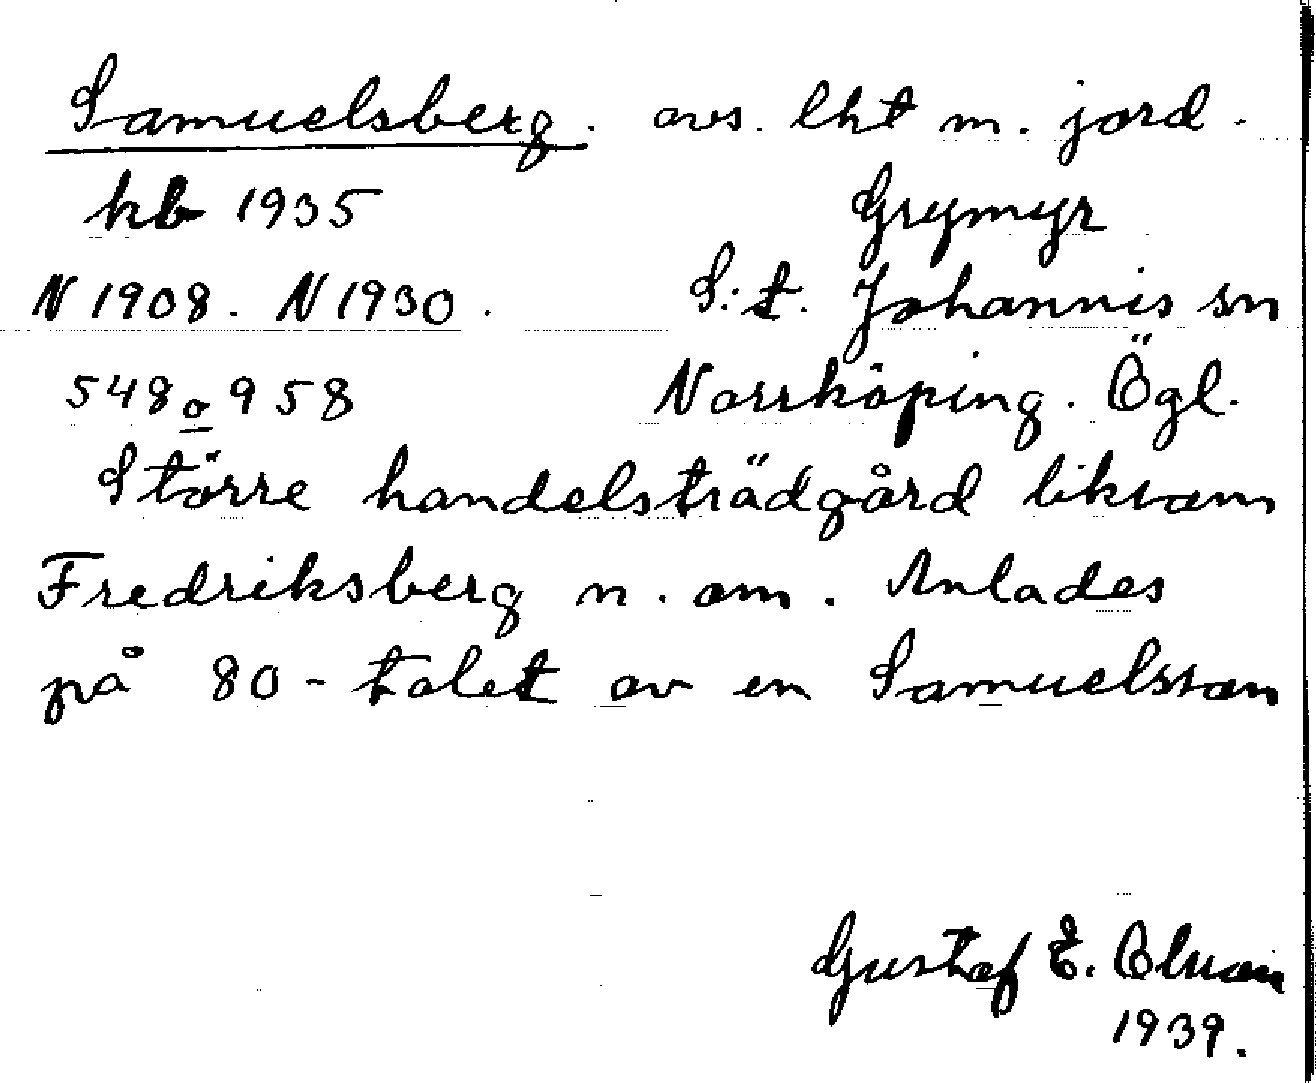 Samuelsberg. avs. lht m. jord.
kb 1935 Grymyr
N 1908. N 1930. S:t. Johannis sn
548 o 958 Norrköping. Ögl.
Större handelsträdgård liksom
Fredriksberg n. om. Anlades
på 80-talet av en Samuelsson
Gustaf E. Olsson
1939.